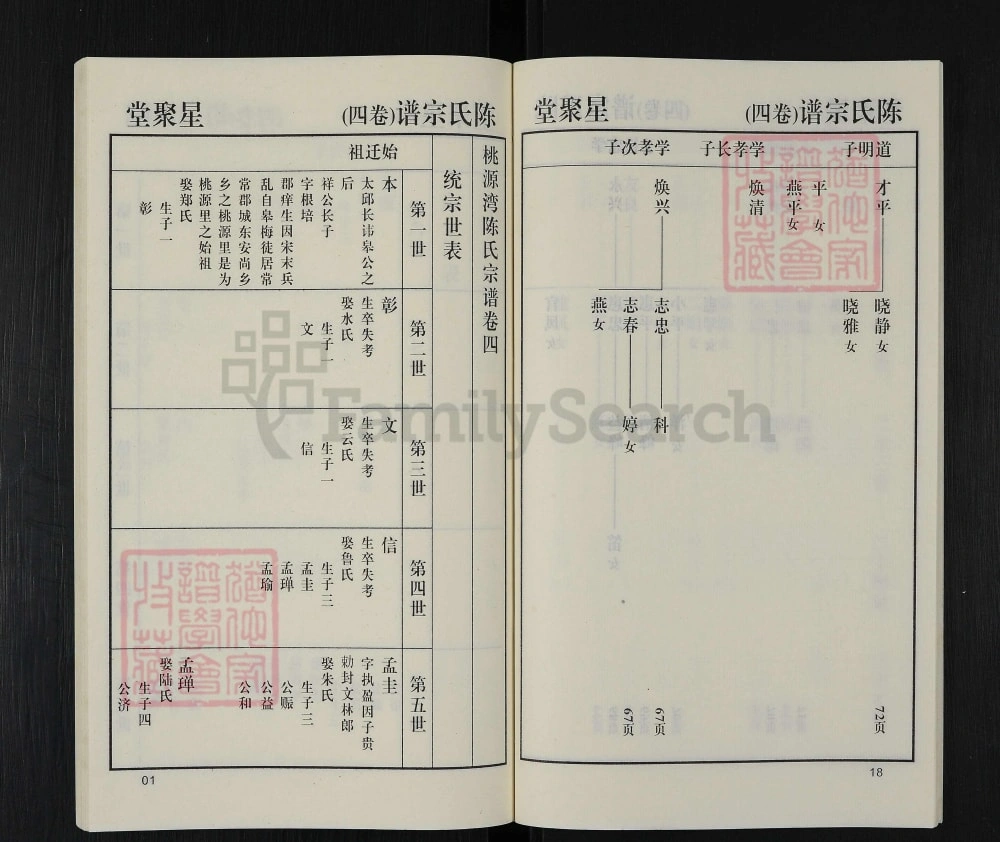 陈氏宗谱(卷四)
星聚堂
道明子
才平
晓静 女
晓雅 女
72页
平 女
燕平 女
学孝长子
焕清
学孝次子
焕兴
志忠
科
67页
志春
婷 女
67页
燕 女
18
陈氏宗谱(卷四)
星聚堂
桃源湾陈氏宗谱卷四
统宗世表
始迁祖
第一世
本
太邱长讳皋公之
后
祥公长子
字根培
郡痒生因宋末兵
乱自皋梅徒居常
常郡城东安尚乡
乡之桃源里是为
桃源里之始祖
娶郑氏
生子一
彰
第二世
彰
生卒失考
娶水氏
生子一
文
第三世
文
生卒失考
娶云氏
生子一
信
第四世
信
生卒失考
娶鲁氏
生子三
孟圭
孟琿
孟瑜
第五世
孟圭
字执盈因子贵
勅封文林郎
娶朱氏
生子三
公赈
公益
公和
孟琿
娶陆氏
生子四
公济
01
FamilySearch